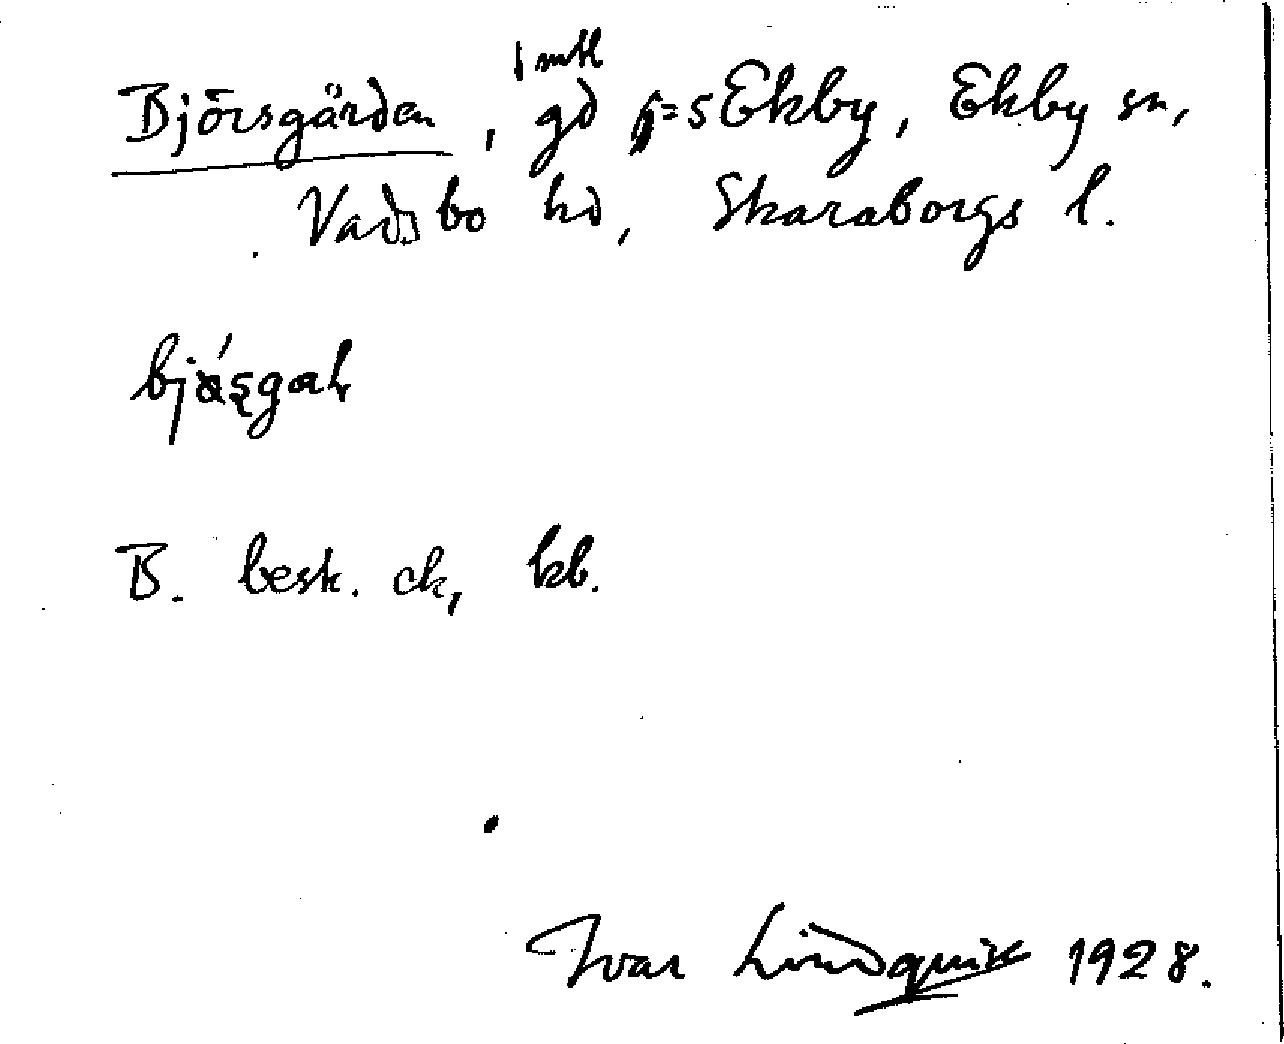 1 mtl
Björsgården, gd i Ekby, Ekby sn,
Vadsbo hd, Skaraborgs l.
B. besk. ek, kb.
Ivar Lindquist 1928.